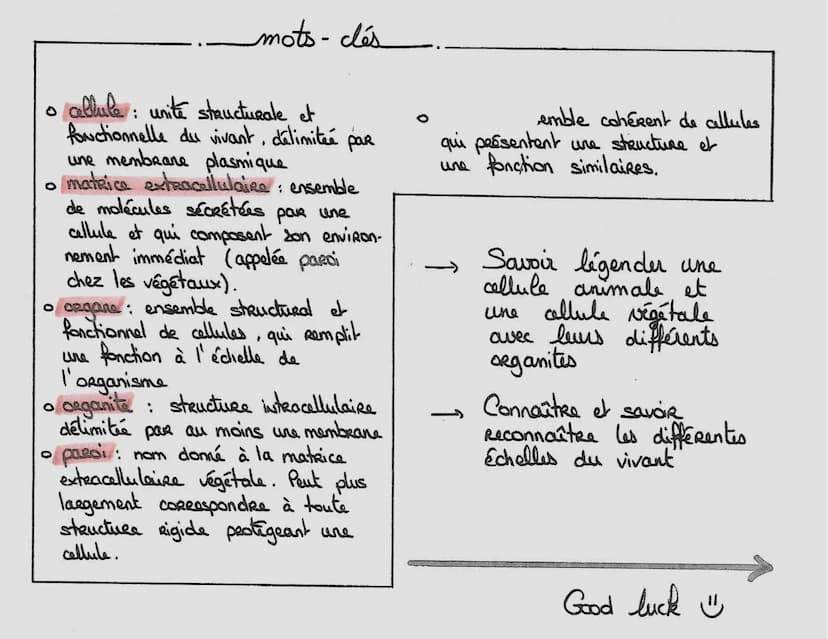 mots-clés
o cellule : unité structurale et
fonctionnelle du vivant, délimitée par
une membrane plasmique
o matrice extracellulaire : ensemble
de molécules sécrétées par une
cellule et qui composent son environ-
nement immédiat (appelée paroi
chez les végétaux).
o organe : ensemble structural et
fonctionnel de cellules, qui remplit
une fonction à l'échelle de
l'organisme
o organite : structure intracellulaire
délimitée par au moins une membrane
o paroi : nom donné à la matrice
extracellulaire végétale. Peut plus
largement correspondre à toute
structure rigide protégeant une
cellule.
o emble cohérent de cellules
qui présentent une structure et
une fonction similaires.
→ Savoir légender une
cellule animale et
une cellule végétale
avec leurs différents
organites
→ Connaître et savoir
reconnaître les différentes
échelles du vivant
Good luck